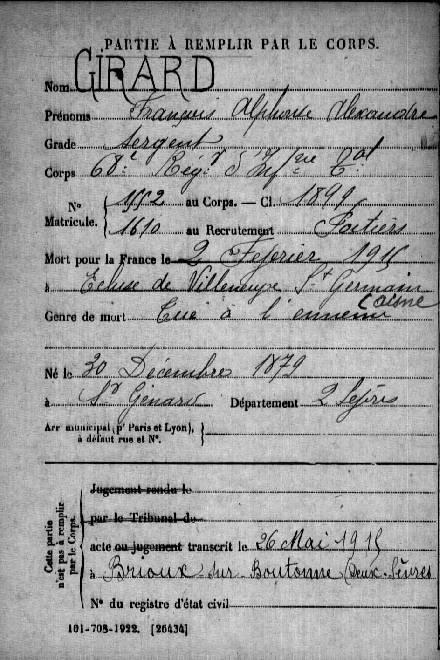 PARTIE À REMPLIR PAR LE CORPS.
Nom GIRARD
Prénoms François Alphonse Alexandre
Grade Sergent
Corps 68e Régt d'Infrie Tal
N° Matricule. { 1552 au Corps. — Cl. 1899
1610 au Recrutement Poitiers
Mort pour la France le 2 Février 1915
à Ecluse de Villeneuve St Germain
(Aisne
Genre de mort Tué à l'ennemi
Né le 30 Décembre 1879
à St Génard Département 2 Sèvres
Arr municipal (pr Paris et Lyon), à défaut rue et N°. }
Cette partie n'est pas à remplir par le Corps.
Jugement rendu le
par le Tribunal de
acte ou jugement transcrit le 26 Mai 1915
à Brioux sur Boutonne (Deux-Sèvres
N° du registre d'état civil
101-708-1922. [26434]